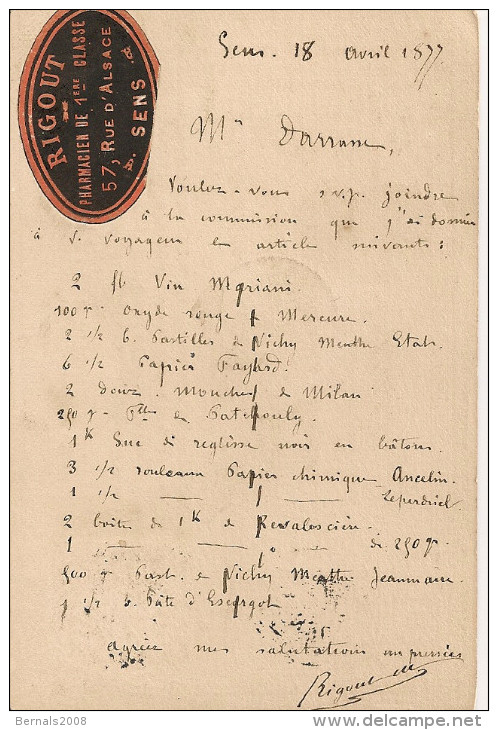 RIGOUT
PHARMACIEN DE 1ERE CLASSE
57, RUE D'ALSACE
SENS
Sens. 18 avril 1877
Mr
Voulez-vous s.v.p. joindre
à la commission que j'ai donnée
à v. voyageur le article suivants:
2 fl Vin Mariani.
100 gr Oxyde rouge de Mercure.
2 1/2 b. Pastilles de Vichy Menthe Etat.
6 1/2 Papier Fayard.
2 douz. Mouches de Milan
250 gr de Patchouly.
1K Suc de reglisse noir en bâtons.
3 1/2 rouleaux Papier chimique Ancelin.
1 1/2 — — Leperdriel
2 boîtes de 1K de Revalescière.
1 — — de 250 gr.
500 gr Past. de Vichy Menthe
1 1/2 b. Pâte d'Escargot
agréez mes salutations empressées
Rigout
Bernals2008
www.delcampe.net